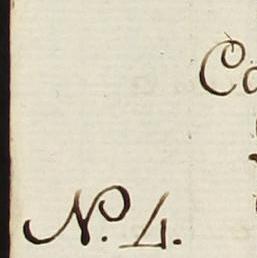 Co
No. 4.